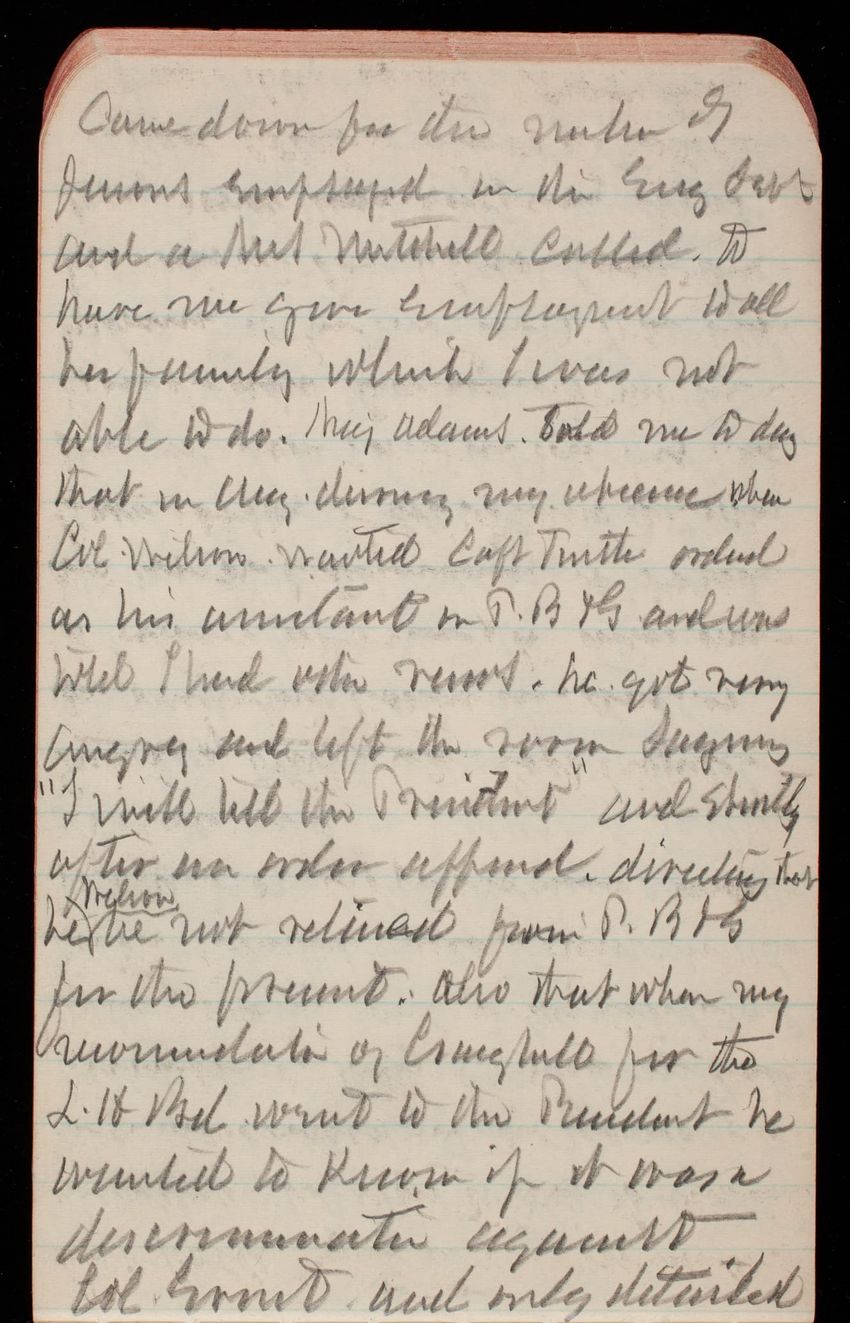 Came down for the number of
persons employed in the Eng Dept
and a Mrs Mitchell called. to
have me give employment to all
her family which I was not
able to do. Maj Adams. told me to day
that in Aug. during my absence when
Col Wilson wanted Capt Turtle ordered
as his assistant on P. B & G and was
told I had other views. he got very
angry and left the room saying
"I will tell the President" and shortly
after an order appeared. directing that
he Wilson be not relieved from P. B & G
for the present. Also that when my
recommendation of Craighill for the
L. H Bd went to the President he
wanted to know if it was a
discrimination against
Col and only detailed